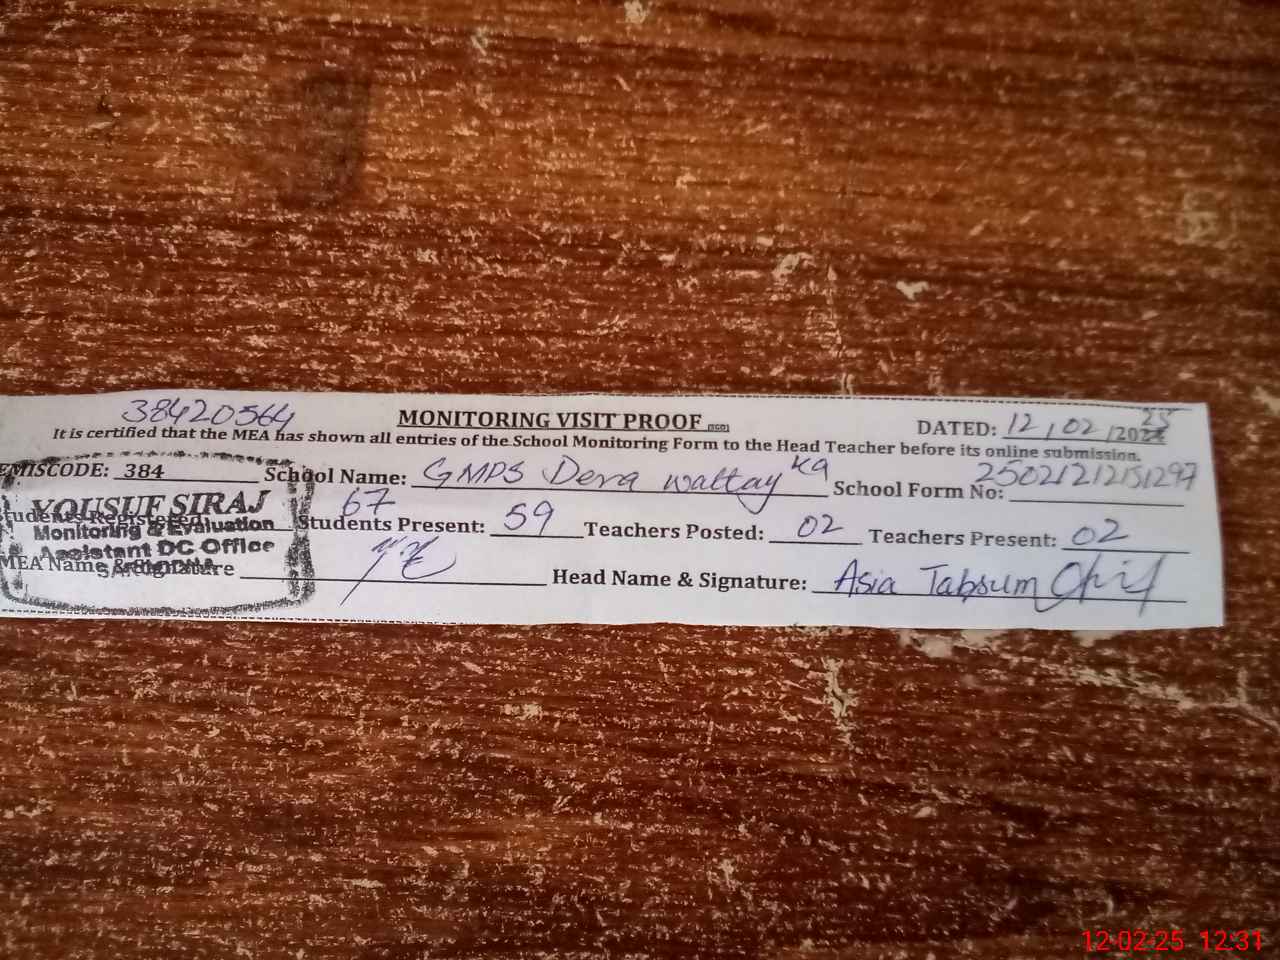 38420564
MONITORING VISIT PROOF
DATED: 12/02/2025
It is certified that the MEA has shown all entries of the School Monitoring Form to the Head Teacher before its online submission.
EMISCODE: 384 School Name: GMPS Dera wattay Ka School Form No:
Students Registered 67 Students Present: 59 Teachers Posted: 02 Teachers Present: 02
MEA Name & Signature Head Name & Signature: Asia Tabsum
YOUSUF SIRAJ
Monitoring & Evaluation
Assistant DC Office
SARGODHA
12-02-25 12:31